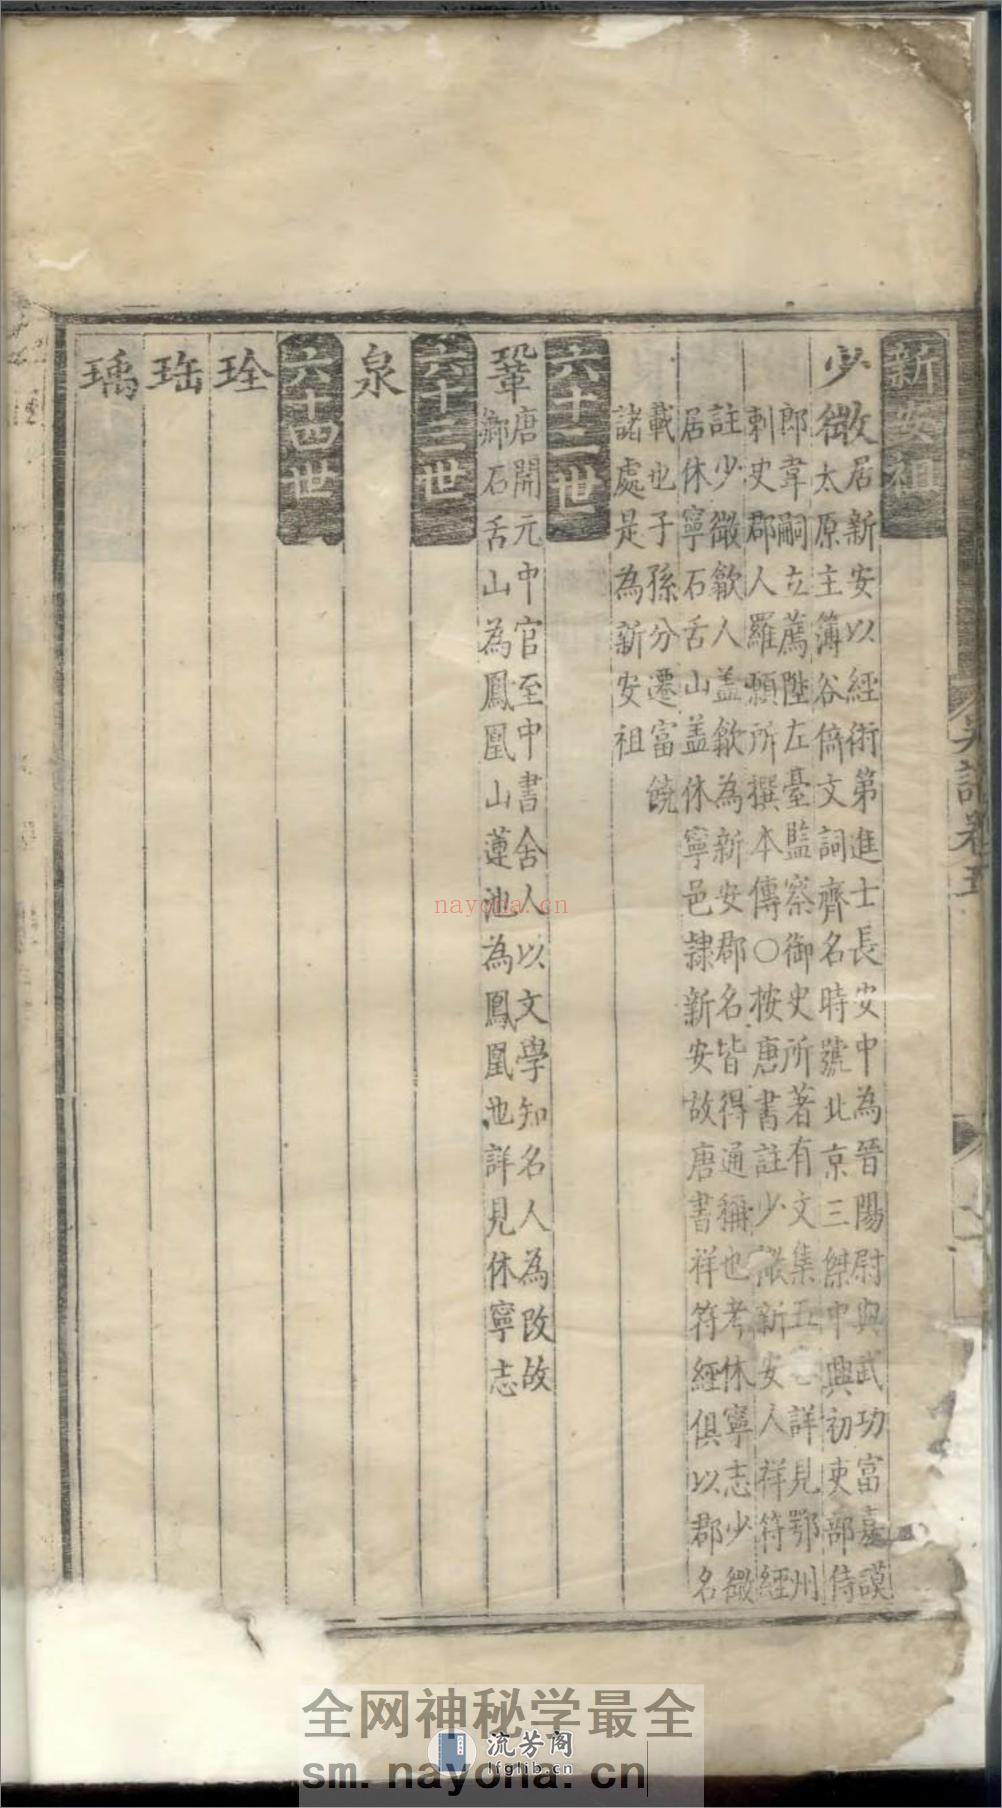 新安祖
少微居新安以經術第進士長安中為晉陽尉與武功富嘉謨
太原主簿谷倚文詞齊名時號北京三傑中興初吏部侍
郎韋嗣立薦陞左臺監察御史所著有文集五 詳見鄂州
刺史郡人羅願所撰本傳○按唐書註少微新安人祥符經
註少微歙人蓋歙為新安郡名皆得通稱也考休寧志少微
居休寧石舌山蓋休寧邑隸新安故唐書祥符經俱以郡名
載也子孫分遷富饒
諸處是為新安祖
六十二世
鞏唐開元中官至中書舍人以文學知名人為改故
鄉石舌山為鳳凰山蓮池為鳳凰池詳見休寧志
六十三世
泉
六十四世
珤
瑀
吳譜卷五
nayona.cn
全网神秘学最全
流芳阁
lfglib.cn
sm.nayona.cn